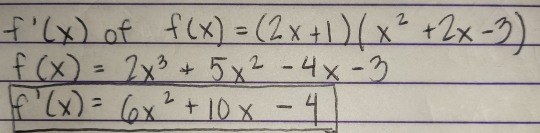 f'(x) of f(x) = (2x+1)(x² +2x-3)
f(x) = 2x³ + 5x² - 4x - 3
f'(x) = 6x² + 10x - 4